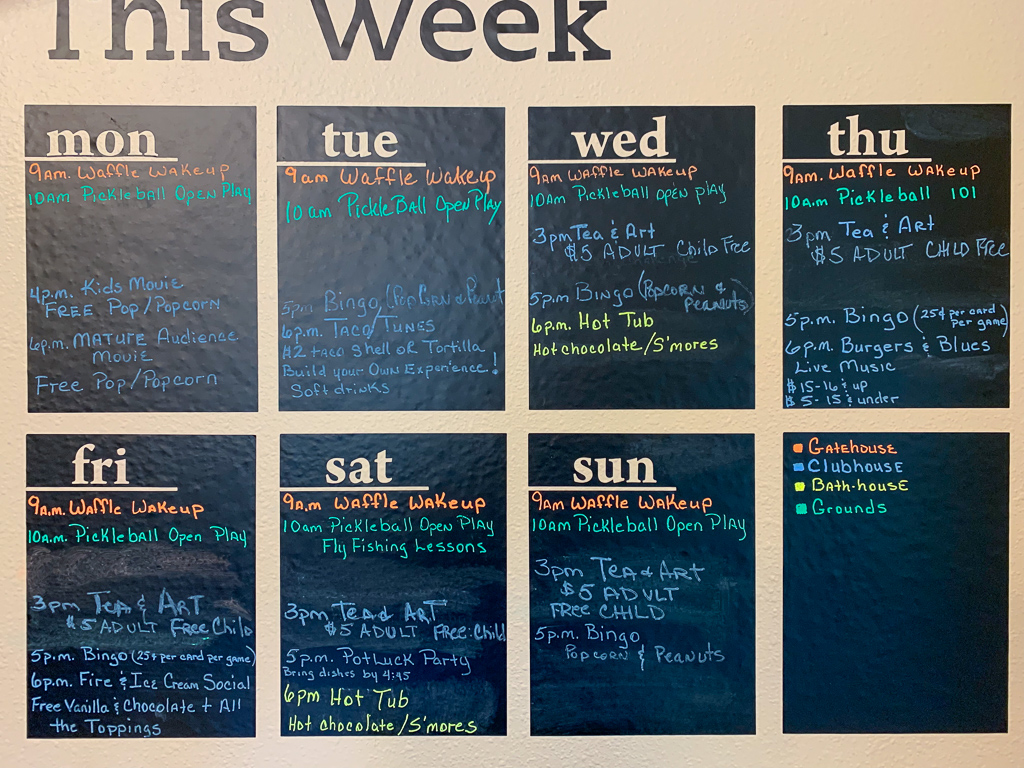 This Week
mon
9am. Waffle Wakeup
10am Pickleball Open Play
4p.m. Kids Movie
FREE Pop/Popcorn
6p.m. MATURE Audience
Movie
Free Pop/Popcorn
tue
9am Waffle Wakeup
10am PickleBall Open Play
5pm Bingo (PopCorn & Peanut
6p.m. Taco/Tunes
#2 taco shell or Tortilla
Build your Own Experience!
Soft drinks
wed
9am Waffle Wakeup
10am Pickleball open play
3pm Tea & Art
$5 ADULT Child Free
5pm Bingo (Popcorn &
Peanuts)
6p.m. Hot Tub
Hot chocolate/S'mores
thu
9am. Waffle Wakeup
10a.m Pickleball 101
3pm Tea & Art
$5 ADULT CHILD Free
5p.m. Bingo (25¢ per card
per game)
6p.m. Burgers & Blues
Live Music
$15-16 & up
$5-15 & under
fri
9a.m. Waffle Wakeup
10a.m. Pickleball Open Play
3pm Tea & Art
$5 ADULT Free Child
5p.m. Bingo (25¢ per card per game)
6p.m. Fire & Ice Cream Social
Free Vanilla & Chocolate + All
the Toppings
sat
9a.m Waffle Wakeup
10am Pickleball Open Play
Fly Fishing Lessons
3pm Tea & Art
$5 ADULT Free:Child
5p.m. Potluck Party
Bring dishes by 4:45
6pm Hot Tub
Hot chocolate/S'mores
sun
9am Waffle Wakeup
10am Pickleball Open Play
3pm Tea & Art
$5 ADULT
FREE CHILD
5p.m. Bingo
Popcorn & Peanuts
Gatehouse
Clubhouse
Bath-house
Grounds